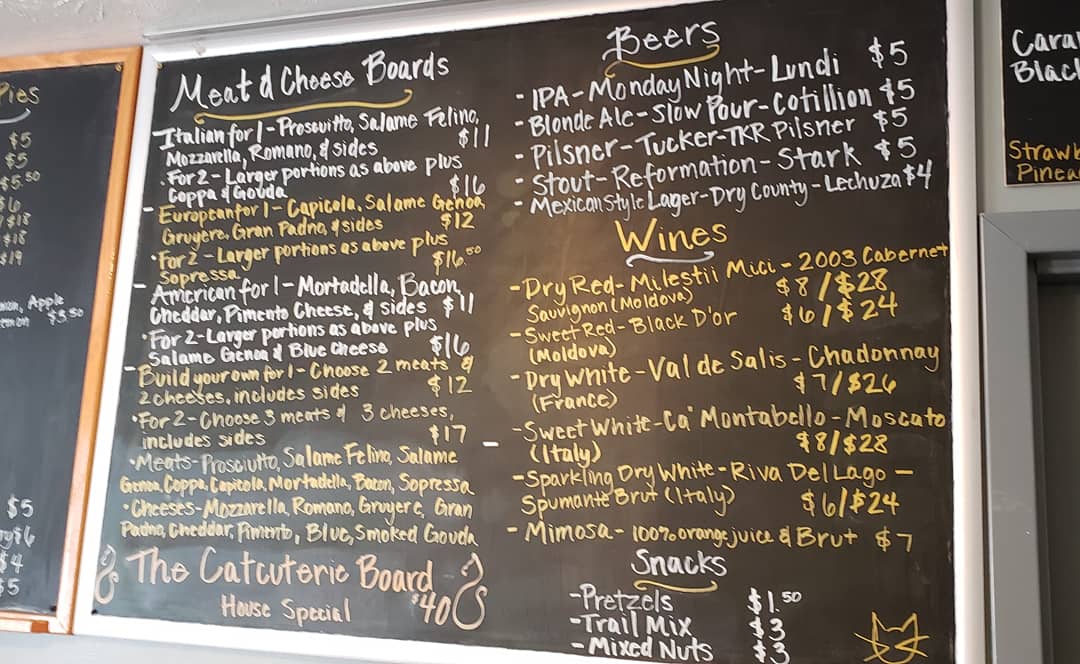 Pies
$5
$5
$5.50
$6
$18
$18
$19
Apple
$3.50
$5
$6
$4
$5
Meat & Cheese Boards
Italian for 1 - Prosciutto, Salame Felino,
Mozzarella, Romano, & sides $11
· For 2 - Larger portions as above plus
Coppa & Gouda $16
- European for 1 - Capicola, Salame Genoa,
Gruyere, Gran Padno, & sides $12
· For 2 - Larger portions as above plus
Sopressa $16.50
- American for 1 - Mortadella, Bacon,
Cheddar, Pimento Cheese, & sides $11
· For 2 - Larger portions as above plus
Salame Genoa & Blue Cheese $16
- Build your own for 1 - Choose 2 meats &
2 cheeses, includes sides $12
· For 2 - Choose 3 meats & 3 cheeses,
includes sides $17
· Meats - Prosciutto, Salame Felino, Salame
Genoa, Coppa, Capicola, Mortadella, Bacon, Sopressa
· Cheeses - Mozzarella, Romano, Gruyere, Gran
Padno, Cheddar, Pimento, Blue, Smoked Gouda
The Catcuterie Board
House Special $40
Beers
- IPA - Monday Night - Lundi $5
- Blonde Ale - Slow Pour - Cotillion $5
- Pilsner - Tucker - TKR Pilsner $5
- Stout - Reformation - Stark $5
- Mexican Style Lager - Dry County - Lechuza $4
Wines
- Dry Red - Milestii Mici - 2003 Cabernet
Sauvignon (Moldova) $8/$28
- Sweet Red - Black D'or $6/$24
(Moldova)
- Dry White - Val de Salis - Chadonnay
(France) $7/$26
- Sweet White - Ca' Montabello - Moscato
(Italy) $8/$28
- Sparkling Dry White - Riva Del Lago -
Spumante Brut (Italy) $6/$24
- Mimosa - 100% orange juice & Brut $7
Snacks
- Pretzels $1.50
- Trail Mix $3
- Mixed Nuts $3